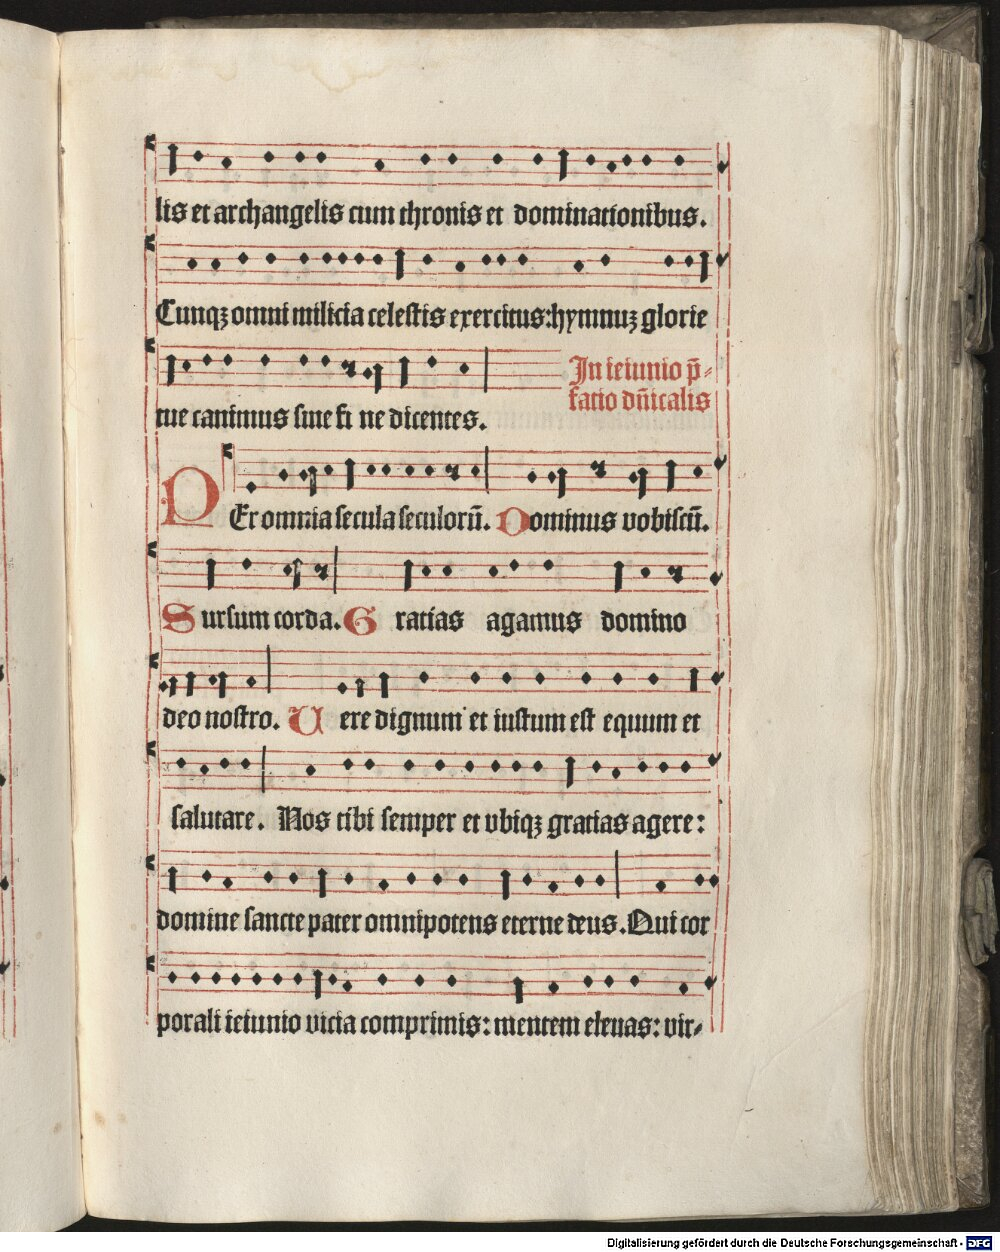 lis et archangelis cum thronis et dominationibus.
Cunqꝫ omni milicia celestis exercitus: hymnuꝫ glorie
tue canimus sine fi ne dicentes.
In ieiunio p̄-
fatio dn̄icalis
PEr omnia secula seculorū. Dominus vobiscū.
Sursum corda. Gratias agamus domino
deo nostro. Uere dignum et iustum est equum et
salutare. Nos tibi semper et vbiqꝫ gratias agere:
domine sancte pater omnipotens eterne deus. Qui cor
porali ieiunio vicia comprimis: mentem eleuas: vir-
Digitalisierung gefördert durch die Deutsche Forschungsgemeinschaft - DFG